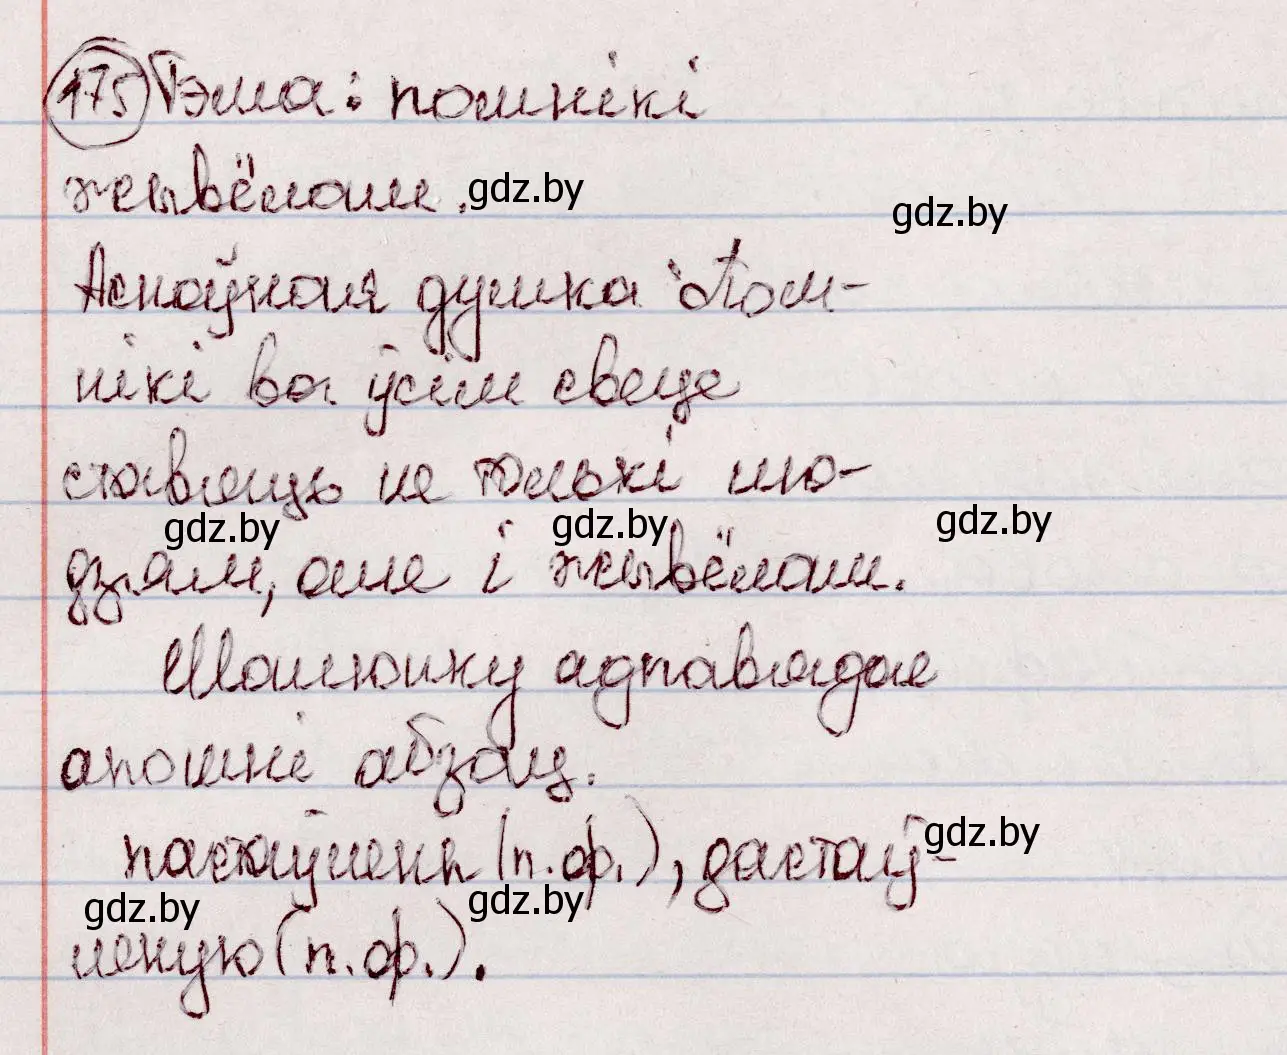 175 Тэма: помнікі
жывёлам. gdz.by
gdz.by
Асноўная думка: Пом-
нікі ва ўсім свеце
ставяць не толькі лю-
gdz.by gdz.by gdz.by
дзям, але і жывёлам.
Малюнку адпавядае
апошні абзац.
пастаўлены (п.ф.), дастаў- gdz.by
gdz.by gdz.by
леную (п.ф.).